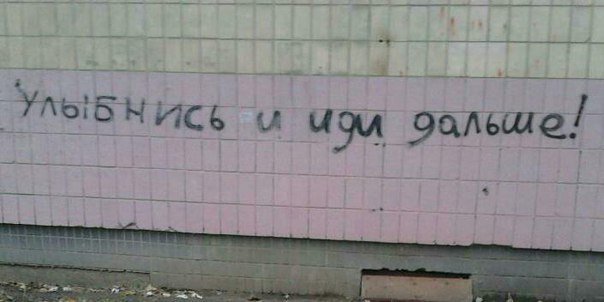 Улыбнись и иди дальше!